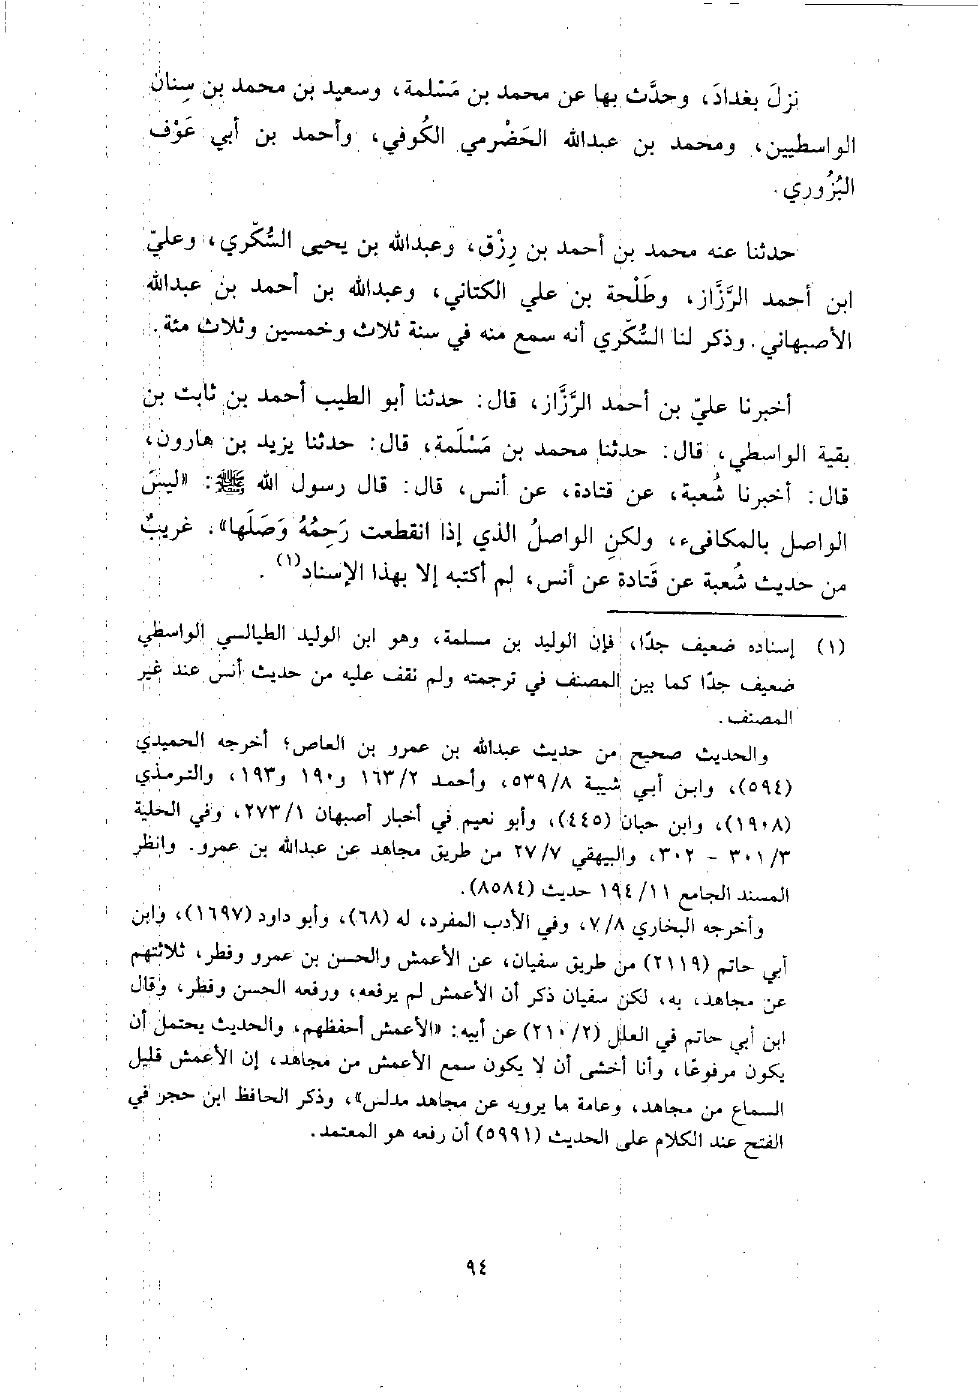 نزلَ بغدادَ، وحدَّث بها عن محمد بن مَسْلمة، وسعيد بن محمد بن سِنان
الواسطيين، ومحمد بن عبدالله الحَضْرمي الكُوفي، وأحمد بن أبي عَوْف
البُزُوري.
حدثنا عنه محمد بن أحمد بن رِزْق، وعبدالله بن يحيى السُّكَّري، وعليّ
ابن أحمد الرَّزَّاز، وطَلْحة بن علي الكتاني، وعبدالله بن أحمد بن عبدالله
الأصبهاني. وذكر لنا السُّكّري أنه سمع منه في سنة ثلاث وخمسين وثلاث مئة.
أخبرنا عليّ بن أحمد الرَّزَّاز، قال: حدثنا أبو الطيب أحمد بن ثابت بن
بقية الواسطي، قال: حدثنا محمد بن مَسْلَمة، قال: حدثنا يزيد بن هارون،
قال: أخبرنا شُعبة، عن قتادة، عن أنس، قال: قال رسول الله ﷺ: «ليسَ
الواصل بالمكافىء، ولكنِ الواصلُ الذي إذا انقطعت رَحِمُهُ وَصَلَها». غريبٌ
من حديث شُعبة عن قَتادة عن أنس، لم أكتبه إلا بهذا الإسناد(١).
(١) إسناده ضعيف جدًا، فإن الوليد بن مسلمة، وهو ابن الوليد الطيالسي الواسطي
ضعيف جدًا كما بين المصنف في ترجمته ولم نقف عليه من حديث أنس عند غير
المصنف.
والحديث صحيح من حديث عبدالله بن عمرو بن العاص؛ أخرجه الحميدي
(٥٩٤)، وابن أبي شيبة ٥٣٩/٨، وأحمد ١٦٣/٢ و١٩٠ و١٩٣، والترمذي
(١٩٠٨)، وابن حبان (٤٤٥)، وأبو نعيم في أخبار أصبهان ٢٧٣/١، وفي الحلية
٣٠١/٣ - ٣٠٢، والبيهقي ٢٧/٧ من طريق مجاهد عن عبدالله بن عمرو. وانظر
المسند الجامع ١٩٤/١١ حديث (٨٥٨٤).
وأخرجه البخاري ٧/٨، وفي الأدب المفرد، له (٦٨)، وأبو داود (١٦٩٧)، وابن
أبي حاتم (٢١١٩) من طريق سفيان، عن الأعمش والحسن بن عمرو وفطر، ثلاثتهم
عن مجاهد، به، لكن سفيان ذكر أن الأعمش لم يرفعه، ورفعه الحسن وفطر، وقال
ابن أبي حاتم في العلل (٢١٠/٢) عن أبيه: «الأعمش أحفظهم، والحديث يحتمل أن
يكون مرفوعًا، وأنا أخشى أن لا يكون سمع الأعمش من مجاهد، إن الأعمش قليل
السماع من مجاهد، وعامة ما يرويه عن مجاهد مدلس»، وذكر الحافظ ابن حجر في
الفتح عند الكلام على الحديث (٥٩٩١) أن رفعه هو المعتمد.
٩٤